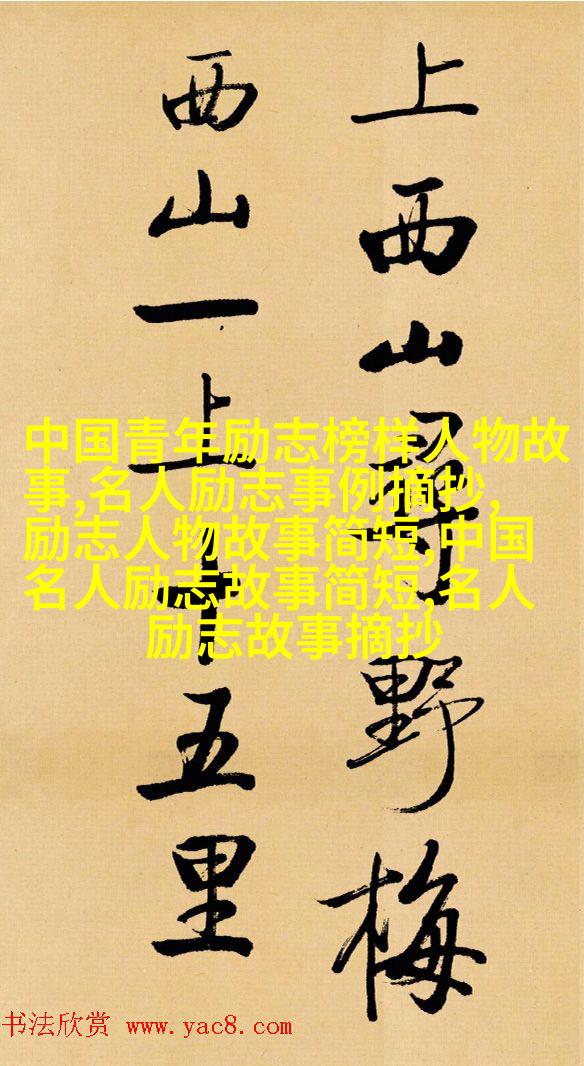 上西山尋野梅
西山一上十五里
中国青年励志榜样人物故
事,名人励志事例摘抄,
励志人物故事简短,中国
名人励志故事简短,名人
励志故事摘抄
书法欣赏 www.yac8.com